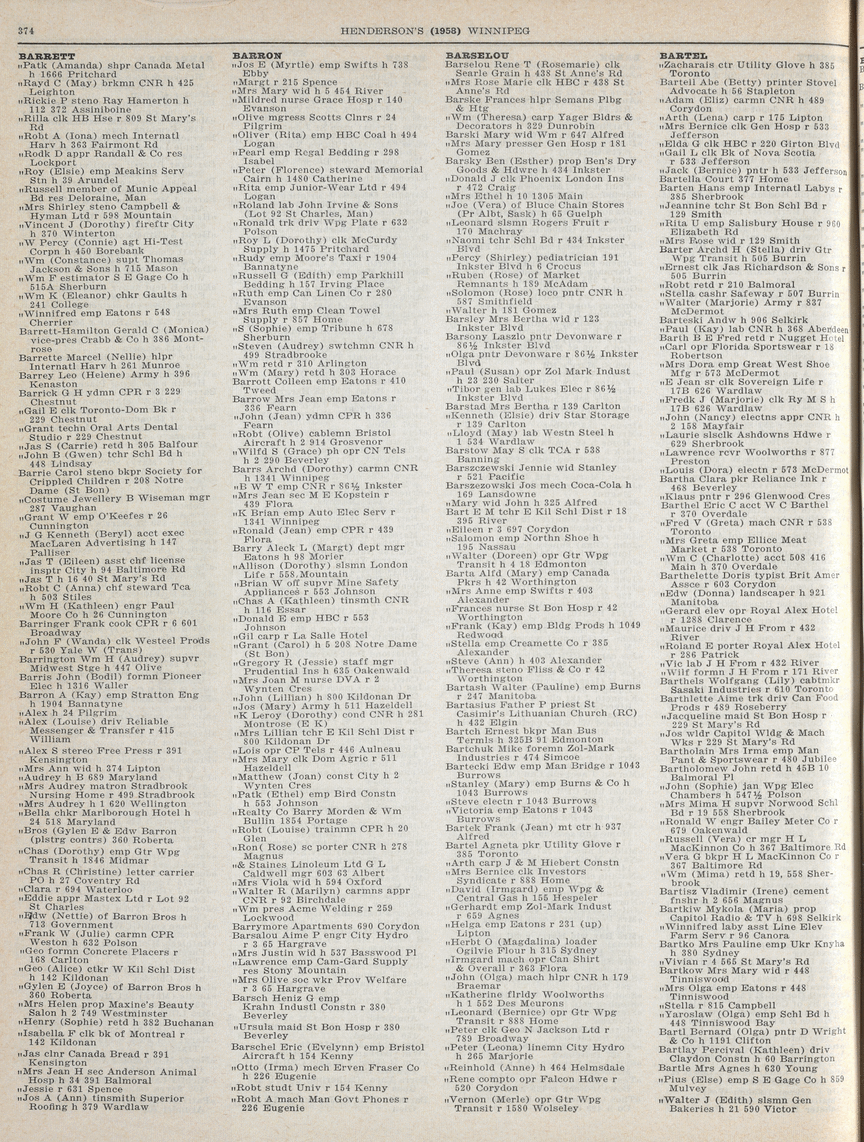 374
HENDERSON'S (1958) WINNIPEG
BARRETT
„Patk (Amanda) shpr Canada Metal
h 1666 Pritchard
„Rayd C (May) brkmn CNR h 425
Leighton
„Rickie P steno Ray Hamerton h
112 372 Assiniboine
„Rilla clk HB Hse r 809 St Mary's
Rd
„Robt A (Iona) mech Internatl
Harv h 363 Fairmont Rd
„Rodk D appr Randall & Co res
Lockport
„Roy (Elsie) emp Meakins Serv
Stn h 39 Arundel
„Russell member of Munic Appeal
Bd res Deloraine, Man
„Mrs Shirley steno Campbell &
Hyman Ltd r 598 Mountain
„Vincent J (Dorothy) fireftr City
h 370 Winterton
„W Percy (Connie) agt Hi-Test
Corpn h 450 Borebank
„Wm (Constance) supt Thomas
Jackson & Sons h 715 Mason
„Wm F estimator S E Gage Co h
515A Sherburn
„Wm K (Eleanor) chkr Gaults h
241 College
„Winnifred emp Eatons r 548
Cherrier
Barrett-Hamilton Gerald C (Monica)
vice-pres Crabb & Co h 386 Mont-
rose
Barrette Marcel (Nellie) hlpr
Internatl Harv h 261 Munroe
Barrey Leo (Helene) Army h 396
Kenaston
Barrick G H ydmn CPR r 3 229
Chestnut
„Gail E clk Toronto-Dom Bk r
229 Chestnut
„Grant techn Oral Arts Dental
Studio r 229 Chestnut
„Jas S (Carrie) retd h 305 Balfour
„John B (Gwen) tchr Schl Bd h
448 Lindsay
Barrie Carol steno bkpr Society for
Crippled Children r 208 Notre
Dame (St Bon)
„Costume Jewellery B Wiseman mgr
287 Vaughan
„Grant W emp O'Keefes r 26
Cunnington
„J G Kenneth (Beryl) acct exec
MacLaren Advertising h 147
Palliser
„Jas T (Eileen) asst chf license
insptr City h 94 Baltimore Rd
„Jas T h 16 40 St Mary's Rd
„Robt C (Anna) chf steward Tca
h 503 Stiles
„Wm H (Kathleen) engr Paul
Moore Co h 26 Cunnington
Barringer Frank cook CPR r 6 601
Broadway
„John F (Wanda) clk Westeel Prods
r 530 Yale W (Trans)
Barrington Wm H (Audrey) supvr
Midwest Stge h 447 Olive
Barris John (Bodil) formn Pioneer
Elec h 1316 Waller
Barron A (Kay) emp Stratton Eng
h 1904 Bannatyne
„Alex h 24 Pilgrim
„Alex (Louise) driv Reliable
Messenger & Transfer r 415
William
„Alex S stereo Free Press r 391
Kensington
„Mrs Ann wid h 374 Lipton
„Audrey h B 689 Maryland
„Mrs Audrey matron Stradbrook
Nursing Home r 499 Stradbrook
„Mrs Audrey h 1 620 Wellington
„Bella chkr Marlborough Hotel h
24 518 Maryland
„Bros (Gylen E & Edw Barron
(plstrg contrs) 360 Roberta
„Chas (Dorothy) emp Gtr Wpg
Transit h 1846 Midmar
„Chas R (Christine) letter carrier
PO h 27 Coventry Rd
„Clara r 694 Waterloo
„Eddie appr Mastex Ltd r Lot 92
St Charles
„Edw (Nettie) of Barron Bros h
713 Government
„Frank W (Julie) carmn CPR
Weston h 632 Polson
„Geo formn Concrete Placers r
168 Carlton
„Geo (Alice) ctkr W Kil Schl Dist
h 142 Kildonan
„Gylen E (Joyce) of Barron Bros h
360 Roberta
„Mrs Helen prop Maxine's Beauty
Salon h 2 749 Westminster
„Henry (Sophie) retd h 382 Buchanan
„Isabella F clk bk of Montreal r
142 Kildonan
„Jas clnr Canada Bread r 391
Kensington
„Mrs Jean H sec Anderson Animal
Hosp h 34 391 Balmoral
„Jessie r 631 Spence
„Jos A (Ann) tinsmith Superior
Roofing h 379 Wardlaw
BARRON
„Jos E (Myrtle) emp Swifts h 738
Ebby
„Margt r 215 Spence
„Mrs Mary wid h 5 454 River
„Mildred nurse Grace Hosp r 140
Evanson
„Olive mgress Scotts Clnrs r 24
Pilgrim
„Oliver (Rita) emp HBC Coal h 494
Logan
„Pearl emp Regal Bedding r 298
Isabel
„Peter (Florence) steward Memorial
Cairn h 1480 Catherine
„Rita emp Junior-Wear Ltd r 494
Logan
„Roland lab John Irvine & Sons
(Lot 92 St Charles, Man)
„Ronald trk driv Wpg Plate r 632
Polson
„Roy L (Dorothy) clk McCurdy
Supply h 1475 Pritchard
„Rudy emp Moore's Taxi r 1904
Bannatyne
„Russell G (Edith) emp Parkhill
Bedding h 157 Irving Place
„Ruth emp Can Linen Co r 280
Evanson
„Mrs Ruth emp Clean Towel
Supply r 857 Home
„S (Sophie) emp Tribune h 678
Sherburn
„Steven (Audrey) swtchmn CNR h
499 Stradbrooke
„Wm retd r 310 Arlington
„Wm (Mary) retd h 303 Horace
Barrott Colleen emp Eatons r 410
Tweed
Barrow Mrs Jean emp Eatons r
336 Fearn
„John (Jean) ydmn CPR h 336
Fearn
„Robt (Olive) cablemn Bristol
Aircraft h 2 914 Grosvenor
„Wilfd S (Grace) ph opr CN Tels
h 2 290 Beverley
Barrs Archd (Dorothy) carmn CNR
h 1341 Winnipeg
„E W T emp CNR r 86½ Inkster
„Mrs Jean sec M E Kopstein r
439 Flora
„K Brian emp Auto Elec Serv r
1341 Winnipeg
„Ronald (Jean) emp CPR r 439
Flora
Barry Aleck L (Margt) dept mgr
Eatons h 98 Morier
„Allison (Dorothy) slsmn London
Life r 558 Mountain
„Brian W off supvr Mine Safety
Appliances r 553 Johnson
„Chas A (Kathleen) tinsmth CNR
h 116 Essar
„Donald E emp HBC r 553
Johnson
„Gil carp r La Salle Hotel
„Grant (Carol) h 5 208 Notre Dame
(St Bon)
„Gregory R (Jessie) staff mgr
Prudential Ins h 635 Oakenwald
„Mrs Joan M nurse DVA r 2
Wynten Cres
„John (Lillian) h 800 Kildonan Dr
„Jos (Mary) Army h 511 Hazeldell
„K Leroy (Dorothy) cond CNR h 281
Montrose (E K)
„Mrs Lillian tchr E Kil Schl Dist r
800 Kildonan Dr
„Lois opr CP Tels r 446 Aulneau
„Mrs Mary clk Dom Agric r 511
Hazeldell
„Matthew (Joan) const City h 2
Wynten Cres
„Patk (Ethel) emp Bird Constn
h 553 Johnson
„Realty Co Barry Morden & Wm
Bullin 1854 Portage
„Robt (Louise) trainmn CPR h 20
Glen
„Ron( Rose) sc porter CNR h 278
Magnus
„& Staines Linoleum Ltd G L
Caldwell mgr 603 63 Albert
„Mrs Viola wid h 594 Oxford
„Walter R (Marilyn) carmns appr
CNR r 92 Birchdale
„Wm pres Acme Welding r 259
Lockwood
Barrymore Apartments 690 Corydon
Barsalou Aime P engr City Hydro
r 3 65 Hargrave
„Mrs Justin wid h 537 Basswood Pl
„Lawrence emp Cam-Gard Supply
res Stony Mountain
„Mrs Olive soc wkr Prov Welfare
r 3 65 Hargrave
Barsch Heinz G emp
Krahn Industl Constn r 380
Beverley
„Ursula maid St Bon Hosp r 380
Beverley
Barschel Eric (Evelynn) emp Bristol
Aircraft h 154 Kenny
„Otto (Irma) mech Erven Fraser Co
h 226 Eugenie
„Robt studt Univ r 154 Kenny
„Robt A mach Man Govt Phones r
226 Eugenie
BARSELOU
Barselou Rene T (Rosemarie) clk
Searle Grain h 438 St Anne's Rd
„Mrs Rose Marie clk HBC r 438 St
Anne's Rd
Barske Frances hlpr Semans Plbg
& Htg
„Wm (Theresa) carp Yager Bldrs &
Decorators h 329 Dunrobin
Barski Mary wid Wm r 647 Alfred
„Mrs Mary presser Gen Hosp r 181
Gomez
Barsky Ben (Esther) prop Ben's Dry
Goods & Hdwre h 434 Inkster
„Donald J clk Phoenix London Ins
r 472 Craig
„Mrs Ethel h 10 1305 Main
„Joe (Vera) of Bluce Chain Stores
(Pr Albt, Sask) h 65 Guelph
„Leonard slsmn Rogers Fruit r
170 Machray
„Naomi tchr Schl Bd r 434 Inkster
Blvd
„Percy (Shirley) pediatrician 191
Inkster Blvd h 6 Crocus
„Ruben (Rose) of Market
Remnants h 189 McAdam
„Solomon (Rose) loco pntr CNR h
587 Smithfield
„Walter h 181 Gomez
Barsley Mrs Bertha wid r 123
Inkster Blvd
Barsony Laszlo pntr Devonware r
86½ Inkster Blvd
„Olga pntr Devonware r 86½ Inkster
Blvd
„Paul (Susan) opr Zol Mark Indust
h 23 230 Salter
„Tibor gen lab Lukes Elec r 86½
Inkster Blvd
Barstad Mrs Bertha r 139 Carlton
„Kenneth (Elsie) driv Star Storage
r 139 Carlton
„Lloyd (May) lab Westn Steel h
1 534 Wardlaw
Barstow May S clk TCA r 538
Banning
Barszczewski Jennie wid Stanley
r 521 Pacific
Barszezowski Jos mech Coca-Cola h
169 Lansdowne
„Mary wid John h 325 Alfred
Bart E M tchr E Kil Schl Dist r 18
395 River
„Eileen r 3 697 Corydon
„Salomon emp Northn Shoe h
195 Nassau
„Walter (Doreen) opr Gtr Wpg
Transit h 4 18 Edmonton
Barta Alfd (Mary) emp Canada
Pkrs h 42 Worthington
„Mrs Anne emp Swifts r 403
Alexander
„Frances nurse St Bon Hosp r 42
Worthington
„Frank (Kay) emp Bldg Prods h 1049
Redwood
„Stella emp Creamette Co r 385
Alexander
„Steve (Ann) h 403 Alexander
„Theresa steno Fliss & Co r 42
Worthington
Bartash Walter (Pauline) emp Burns
r 247 Manitoba
Bartasius Father P priest St
Casimir's Lithuanian Church (RC)
h 432 Elgin
Bartch Ernest bkpr Man Bus
Termls h 325B 91 Edmonton
Bartchuk Mike foremn Zol-Mark
Industries r 474 Simcoe
Bartecki Edw emp Man Bridge r 1043
Burrows
„Stanley (Mary) emp Burns & Co h
1043 Burrows
„Steve electn r 1043 Burrows
„Victoria emp Eatons r 1043
Burrows
Bartek Frank (Jean) mt ctr h 937
Alfred
Bartel Agneta pkr Utility Glove r
385 Toronto
„Arth carp J & M Hiebert Constn
„Mrs Bernice clk Investors
Syndicate r 888 Home
„David (Irmgard) emp Wpg &
Central Gas h 155 Hespeler
„Gerhardt emp Zol-Mark Indust
r 659 Agnes
„Helga emp Eatons r 231 (up)
Lipton
„Herbt O (Magdalina) loader
Ogilvie Flour h 315 Sydney
„Irmgard mach opr Can Shirt
& Overall r 363 Flora
„John (Olga) mach hlpr CNR h 179
Braemar
„Katherine flrldy Woolworths
h 1 552 Des Meurons
„Leonard (Bernice) opr Gtr Wpg
Transit r 888 Home
„Peter clk Geo N Jackson Ltd r
789 Broadway
„Peter (Leona) linemn City Hydro
h 265 Marjorie
„Reinhold (Anne) h 464 Helmsdale
„Rene compto opr Falcon Hdwe r
520 Corydon
„Vernon (Merle) opr Gtr Wpg
Transit r 1580 Wolseley
BARTEL
„Zacharais ctr Utility Glove h 385
Toronto
Bartell Abe (Betty) printer Stovel
Advocate h 56 Stapleton
„Adam (Eliz) carmn CNR h 489
Corydon
„Arth (Lena) carp r 175 Lipton
„Mrs Bernice clk Gen Hosp r 533
Jefferson
„Elda G clk HBC r 220 Girton Blvd
„Gail L clk Bk of Nova Scotia
r 533 Jefferson
„Jack (Bernice) pntr h 533 Jefferson
Bartella Court 377 Home
Barten Hans emp Internatl Labys r
385 Sherbrook
„Jeannine tchr St Bon Schl Bd r
129 Smith
„Rita U emp Salisbury House r 960
Elizabeth Rd
„Mrs Rose wid r 129 Smith
Barter Archd H (Stella) driv Gtr
Wpg Transit h 505 Burrin
„Ernest clk Jas Richardson & Sons r
505 Burrin
„Robt retd r 210 Balmoral
„Stella cashr Safeway r 507 Burrin
„Walter (Marjorie) Army r 837
McDermot
Barteski Andw h 906 Selkirk
„Paul (Kay) lab CNR h 368 Aberdeen
Barth B E Fred retd r Nugget Hotel
„Carl opr Florida Sportswear r 18
Robertson
„Mrs Dora emp Great West Shoe
Mfg r 573 McDermot
„E Jean sr clk Sovereign Life r
17B 626 Wardlaw
„Fredk J (Marjorie) clk Ry M S h
17B 626 Wardlaw
„John (Nancy) electns appr CNR h
2 158 Mayfair
„Laurie slsclk Ashdowns Hdwe r
629 Sherbrook
„Lawrence rcvr Woolworths r 877
Preston
„Louis (Dora) electn r 573 McDermot
Bartha Clara pkr Reliance Ink r
468 Beverley
„Klaus pntr r 296 Glenwood Cres
Barthel Eric C acct W C Barthel
r 370 Overdale
„Fred V (Greta) mach CNR r 538
Toronto
„Mrs Greta emp Ellice Meat
Market r 538 Toronto
„Wm C (Charlotte) acct 508 416
Main h 370 Overdale
Barthelette Doris typist Brit Amer
Assce r 603 Corydon
„Edw (Donna) landscaper h 921
Manitoba
„Gerard elev opr Royal Alex Hotel
r 1288 Clarence
„Maurice driv J H From r 432
River
„Roland E porter Royal Alex Hotel
r 286 Patrick
„Vic lab J H From r 432 River
„Wilf formn J H From r 171 River
Barthels Wolfgang (Lily) cabtmkr
Sasaki Industries r 610 Toronto
Barthlette Aime trk driv Can Food
Prods r 489 Roseberry
„Jacqueline maid St Bon Hosp r
229 St Mary's Rd
„Jos wldr Capitol Wldg & Mach
Wks r 229 St Mary's Rd
Bartholain Mrs Irma emp Man
Pant & Sportswear r 480 Jubilee
Bartholomew John retd h 45B 10
Balmoral Pl
„John (Sophie) jan Wpg Elec
Chambers h 547½ Polson
„Mrs Mima H supvr Norwood Schl
Bd r 19 558 Sherbrook
„Ronald W engr Bailey Meter Co r
679 Oakenwald
„Russell (Vera) cr mgr H L
MacKinnon Co h 367 Baltimore Rd
„Vera G bkpr H L MacKinnon Co r
367 Baltimore Rd
„Wm (Mima) retd h 19, 558 Sher-
brook
Bartisz Vladimir (Irene) cement
fnshr h 2 656 Magnus
Bartkiw Mykola (Maria) prop
Capitol Radio & TV h 698 Selkirk
„Winnifred laby asst Line Elev
Farm Serv r 96 Canora
Bartko Mrs Pauline emp Ukr Knyha
h 380 Sydney
„Vivian r 4 565 St Mary's Rd
Bartkow Mrs Mary wid r 448
Tinniswood
„Mrs Olga emp Eatons r 448
Tinniswood
„Stella r 815 Campbell
„Yaroslaw (Olga) emp Schl Bd h
448 Tinniswood Bay
Bartl Bernard (Olga) pntr D Wright
& Co h 1191 Clifton
Bartlay Percival (Kathleen) driv
Claydon Constn h 60 Barrington
Bartle Mrs Agnes h 630 Young
„Pius (Else) emp S E Gage Co h 859
Mulvey
„Walter J (Edith) slsmn Gen
Bakeries h 21 590 Victor